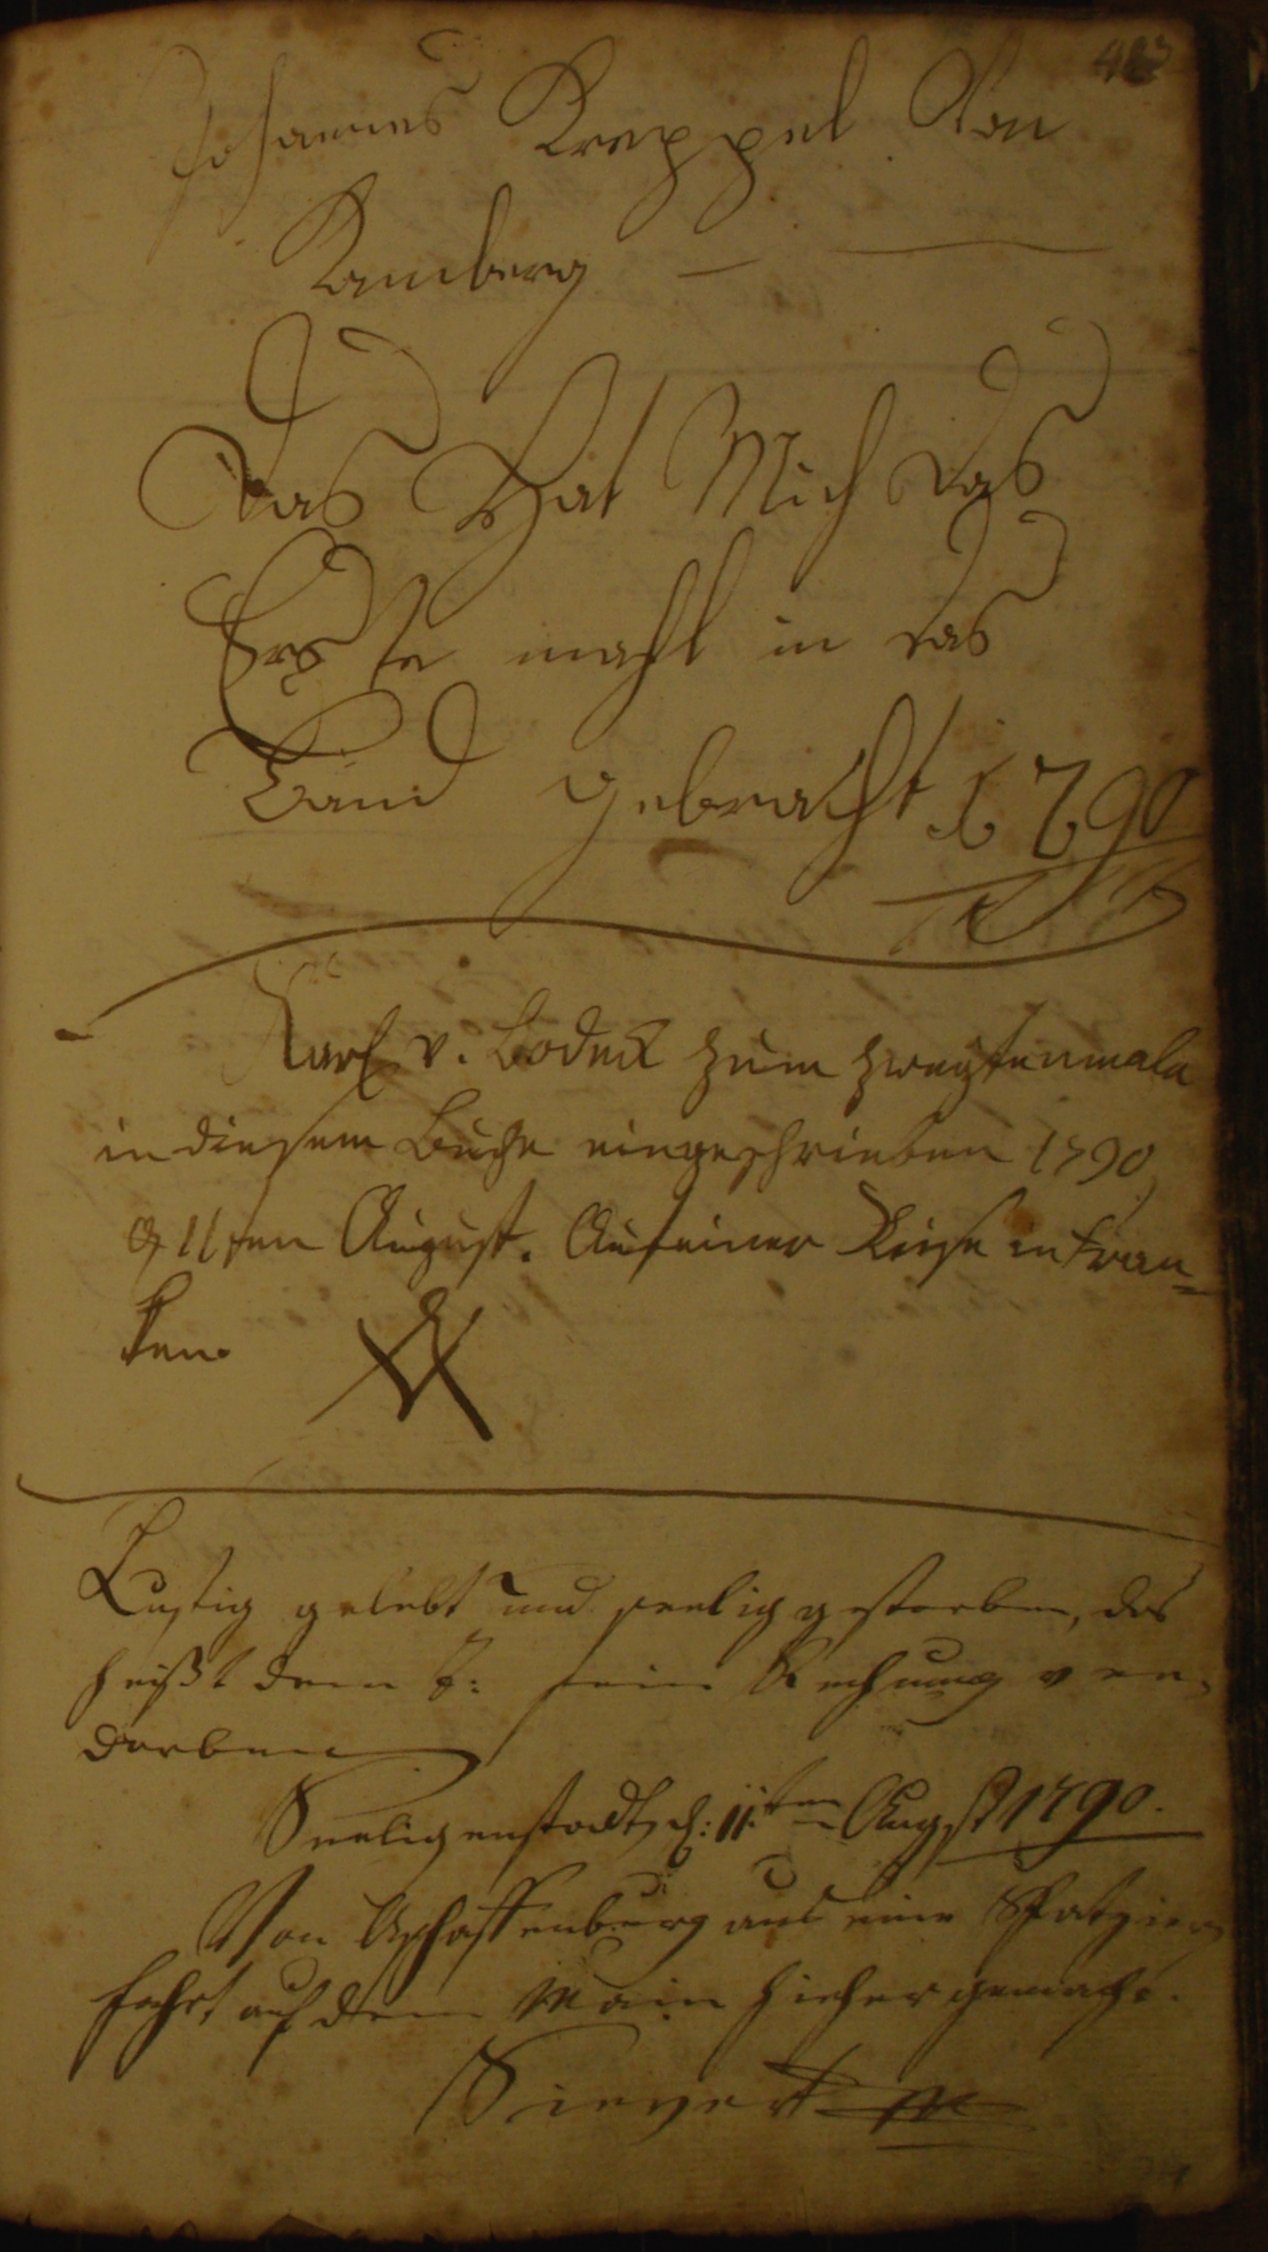 Johannes Kreppel Von
Bamberg
Das Hat Mich das
Erste mahl in das
Land gebracht 1790
Karl v. Bodeck zum zweytenmale
in diesem Buche eingeschrieben 1790
d 11ten August. Auf einer Reise in Fran=
ken.
Lustig gelebt und seelig gestorben, das
heißt dem T: seine Rechnung ver=
dorben
Seeligenstadt, d: 11ten Augst 1790.
Von Aschaffenburg aus eine Spatzier
fahrt auf dem Main hieher gemacht.
Sievert